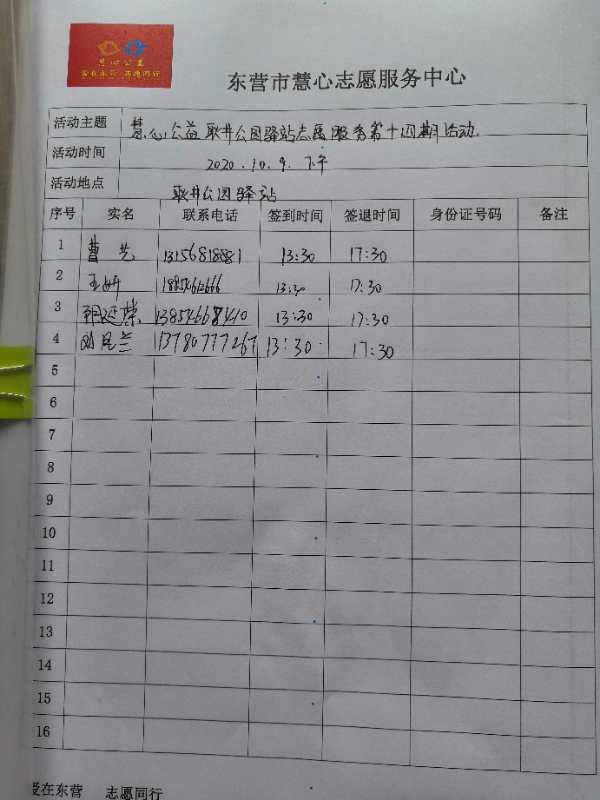 慧心公益
爱在东营 志愿同行
东营市慧心志愿服务中心
活动主题 慧心公益耿井公园驿站志愿服务第十四期活动
活动时间 2020.10.9.下午
活动地点 耿井公园驿站
序号 实名 联系电话 签到时间 签退时间 身份证号码 备注
1 曹 13:30 17:30
2 王妍 17:30
3 13854668410 13:30 17:30
4 兰 13780777267 13:30 17:30
5
6
7
8
9
10
11
12
13
14
15
16
爱在东营 志愿同行